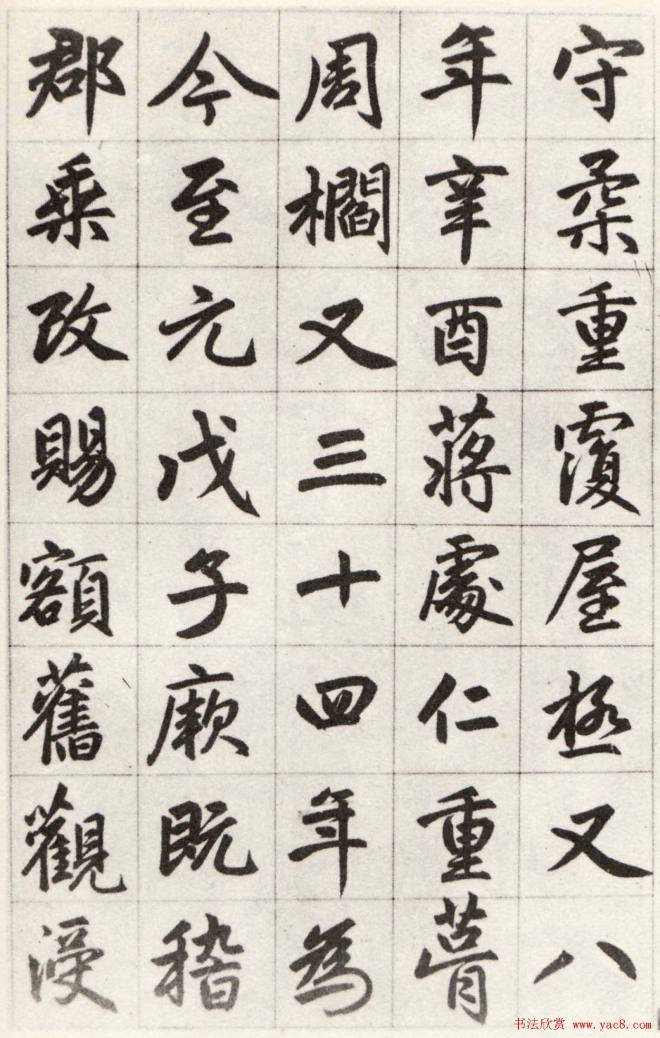 守柔重覆屋極又八
年辛酉蔣處仁重葺
周櫩又三十四年為
今至元戊子廟既稽
郡乘改賜額舊觀浸
书法欣赏 www.yac8.com